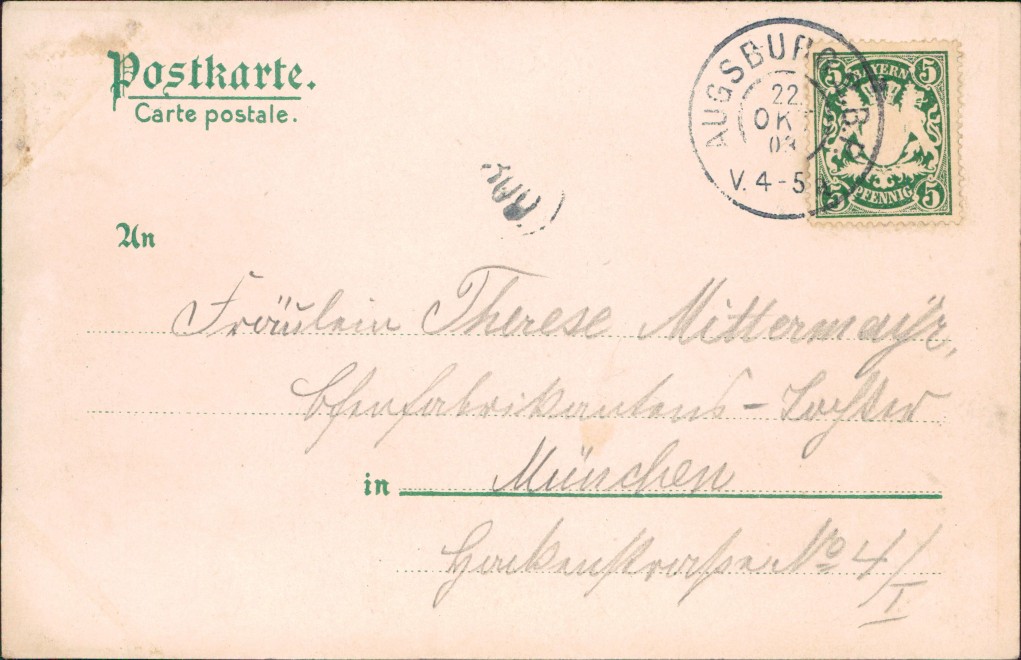 Postkarte.
Carte postale.
AUGSBURG
22.
OKT
03
V. 4-5
5 BAYERN 5
5 PFENNIG 5
An
Fräulein Therese Mittermayr,
Ofenfabrikantens-Tochter
in München
Hackenstrasse No 4/I